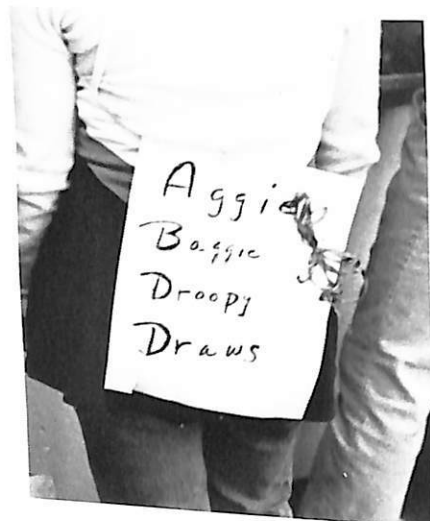 Aggie
Baggie
Droopy
Draws